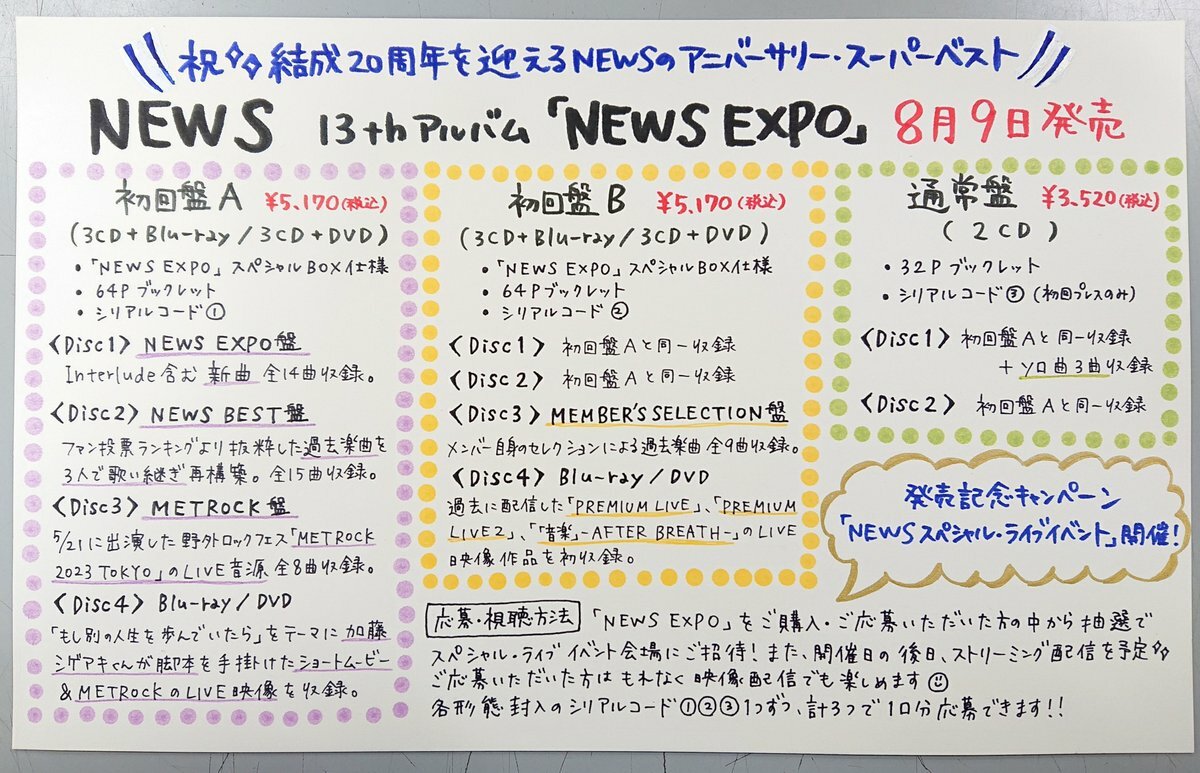 祝 結成20周年を迎えるNEWSのアニバーサリー・スーパーベスト
NEWS 13thアルバム「NEWS EXPO」 8月9日発売
初回盤A ¥5,170(税込)
(3CD+Blu-ray/3CD+DVD)
・「NEWS EXPO」スペシャルBOX仕様
・64Pブックレット
・シリアルコード①
〈Disc1〉NEWS EXPO盤
Interlude含む新曲 全14曲収録。
〈Disc2〉NEWS BEST盤
ファン投票ランキングより抜粋した過去楽曲を
3人で歌い継ぎ再構築。全15曲収録。
〈Disc3〉METROCK盤
5/21に出演した野外ロックフェス「METROCK
2023 TOKYO」のLIVE音源 全8曲収録。
〈Disc4〉Blu-ray/DVD
「もし別の人生を歩んでいたら」をテーマに加藤
シゲアキくんが脚本を手掛けたショートムービー
&METROCKのLIVE映像を収録。
初回盤B ¥5,170(税込)
(3CD+Blu-ray/3CD+DVD)
・「NEWS EXPO」スペシャルBOX仕様
・64Pブックレット
・シリアルコード②
〈Disc1〉初回盤Aと同一収録
〈Disc2〉初回盤Aと同一収録
〈Disc3〉MEMBER'S SELECTION盤
メンバー自身のセレクションによる過去楽曲 全9曲収録。
〈Disc4〉Blu-ray/DVD
過去に配信した「PREMIUM LIVE」、「PREMIUM
LIVE2」、「音楽-AFTER BREATH-」のLIVE
映像作品を初収録。
通常盤 ¥3,520(税込)
(2CD)
・32Pブックレット
・シリアルコード③(初回プレスのみ)
〈Disc1〉初回盤Aと同一収録
+ソロ曲3曲収録
〈Disc2〉初回盤Aと同一収録
発売記念キャンペーン
「NEWSスペシャル・ライブイベント」開催!
応募・視聴方法 「NEWS EXPO」をご購入・ご応募いただいた方の中から抽選で
スペシャル・ライブイベント会場にご招待!また、開催日の後日、ストリーミング配信を予定
ご応募いただいた方はもれなく映像配信でも楽しめます
各形態封入のシリアルコード①②③1つずつ、計3つで1口分応募できます!!